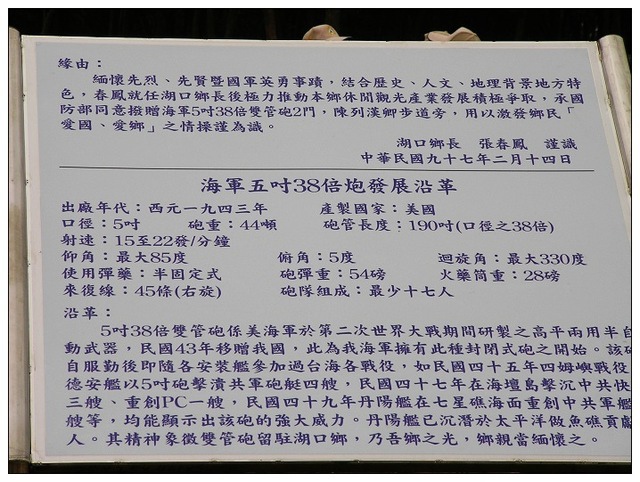 緣由：
緬懷先烈、先賢暨國軍英勇事蹟，結合歷史、人文、地理背景地方特
色，春鳳就任湖口鄉長後極力推動本鄉休閒觀光產業發展積極爭取，承國
防部同意撥贈海軍5吋38倍雙管砲2門，陳列漢卿步道旁，用以激發鄉民「
愛國、愛鄉」之情操謹為識。
湖口鄉長 張春鳳 謹識
中華民國九十七年二月十四日
海軍五吋38倍炮發展沿革
出廠年代：西元一九四三年 產製國家：美國
口徑：5吋 砲重：44噸 砲管長度：190吋(口徑之38倍)
射速：15至22發/分鐘
仰角：最大85度 俯角：5度 迴旋角：最大330度
使用彈藥：半固定式 砲彈重：54磅 火藥筒重：28磅
來復線：45條(右旋) 砲隊組成：最少十七人
沿革：
5吋38倍雙管砲係美海軍於第二次世界大戰期間研製之高平兩用半自
動武器，民國43年移贈我國，此為我海軍擁有此種封閉式砲之開始。該砲
自服勤後即隨各安裝艦參加過台海各戰役，如民國四十五年四姆嶼戰役
德安艦以5吋砲擊潰共軍砲艇四艘，民國四十七年在海壇島擊沉中共快
三艘、重創PC一艘，民國四十九年丹陽艦在七星礁海面重創中共軍艦
艘等，均能顯示出該砲的強大威力。丹陽艦已沉潛於太平洋做魚礁貢獻
人。其精神象徵雙管砲留駐湖口鄉，乃吾鄉之光，鄉親當緬懷之。